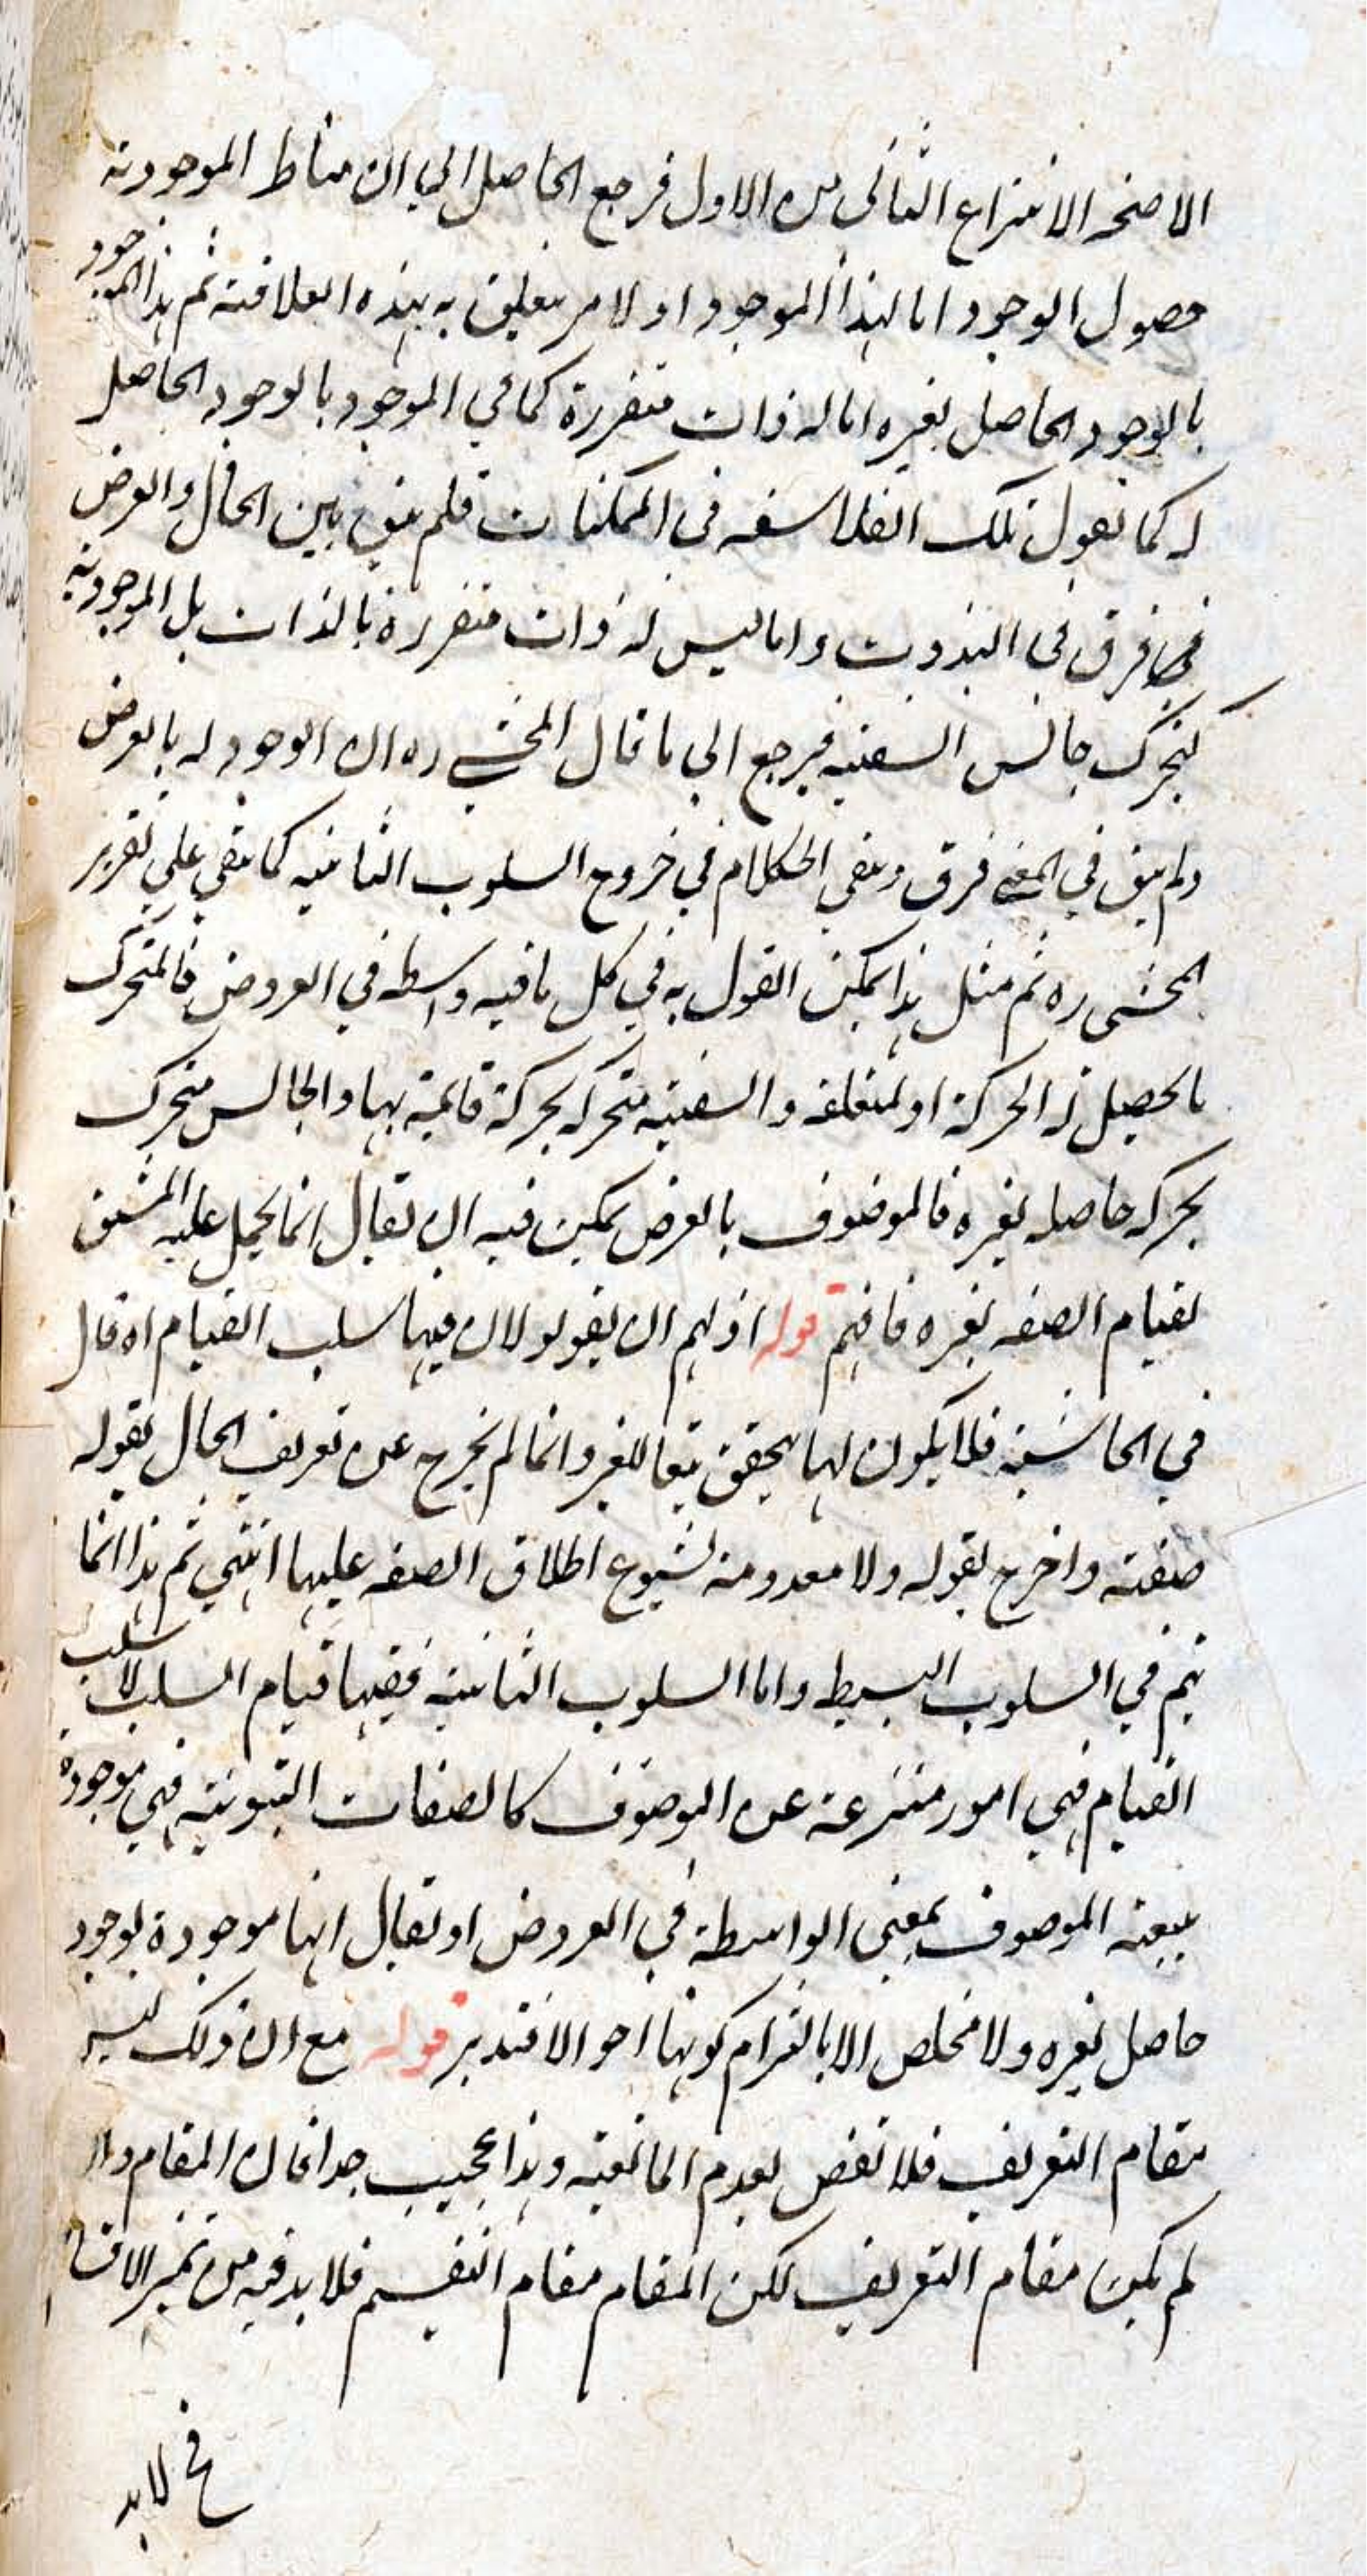 الا صحة الانتزاع الثاني من الاول فرجع الحاصل الي ان مناط الموجودية
حصول الوجود اما لهذا الموجود او لامر يتعلق به بهذه العلاقة ثم هذا الموجود
بالوجود الحاصل لغيره اما له ذات متقررة كما في الموجود بالوجود الحاصل
له كما تقول تلك الفلاسفه في الممكنات فلم يبق بين الحال والعرض
فرق في الثبوت واما ليس له ذات متقررة بالذات بل الموجودية
كتحرك جالس السفينه فيرجع الي ما قال المحشي ره ان الوجود له بالعرض
ولم يبق في المعنى فرق وبقي الكلام في خروج السلوب الثابتيه كما بقي علي تقرير
المحشي ره ثم مثل هذا يمكن القول به في كل ما فيه واسطه في العروض فالمتحرك
ما يحصل له الحركة او لمتعلقه والسفينه متحركه بحركة قائمة بها والجالس متحرك
بحركه حاصله لغيره فالموصوف بالعرض يمكن فيه ان يقال انما يحمل عليه المشتق
لقيام الصفه بغيره فافهم قوله اذ لهم ان يقولو لان فيها سلب القيام اه قال
في الحاشية فلا يكون لها تحقق تبعا للغير وانما لم يخرج عن تعريف الحال بقوله
صفته واخرج بقوله ولا معدومة لشيوع اطلاق الصفه عليها انتهي ثم هذا انما
يتم في السلوب البسيط واما السلوب الثابتية ففيها قيام السلب لا سلب
القيام فهي امور منتزعة عن الموصوف كالصفات الثبوتية فهي موجودة
بتبعة الموصوف بمعنى الواسطة في العروض او يقال انها موجودة بوجود
حاصل لغيره ولا مخلص الا بالتزام كونها احوالا فتدبر قوله مع ان ذلك ليس
مقام التعريف فلا نقض بعدم المانعية وهذا عجيب جدا فان المقام وان
لم يكن مقام التعريف لكن المقام مقام التقسيم فلا بد فيه من تميز الاقسام
لابد